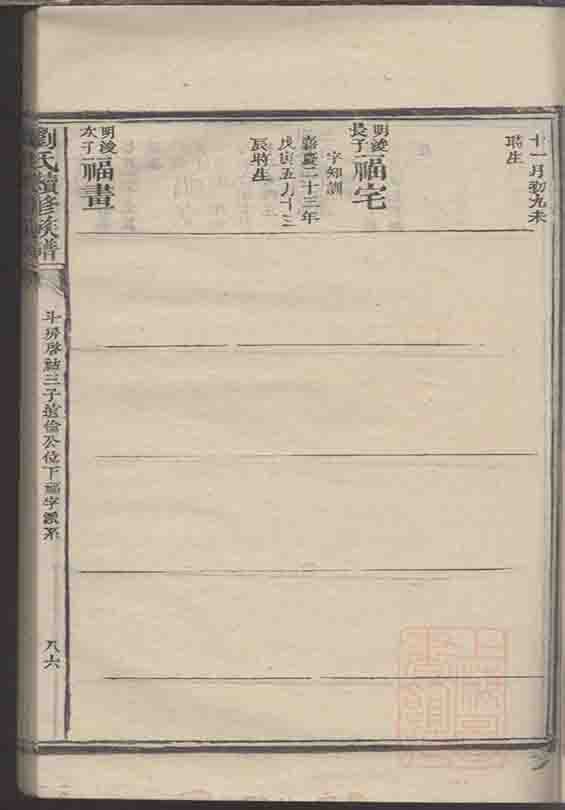 十一月初九未
時生
明浚
長子
福宅
字知訓
嘉慶二十三年
戊寅五月十三
辰時生
明浚
次子
福畫
劉氏續修族譜
斗房啓姑三子道倫公位下福字派系
八六